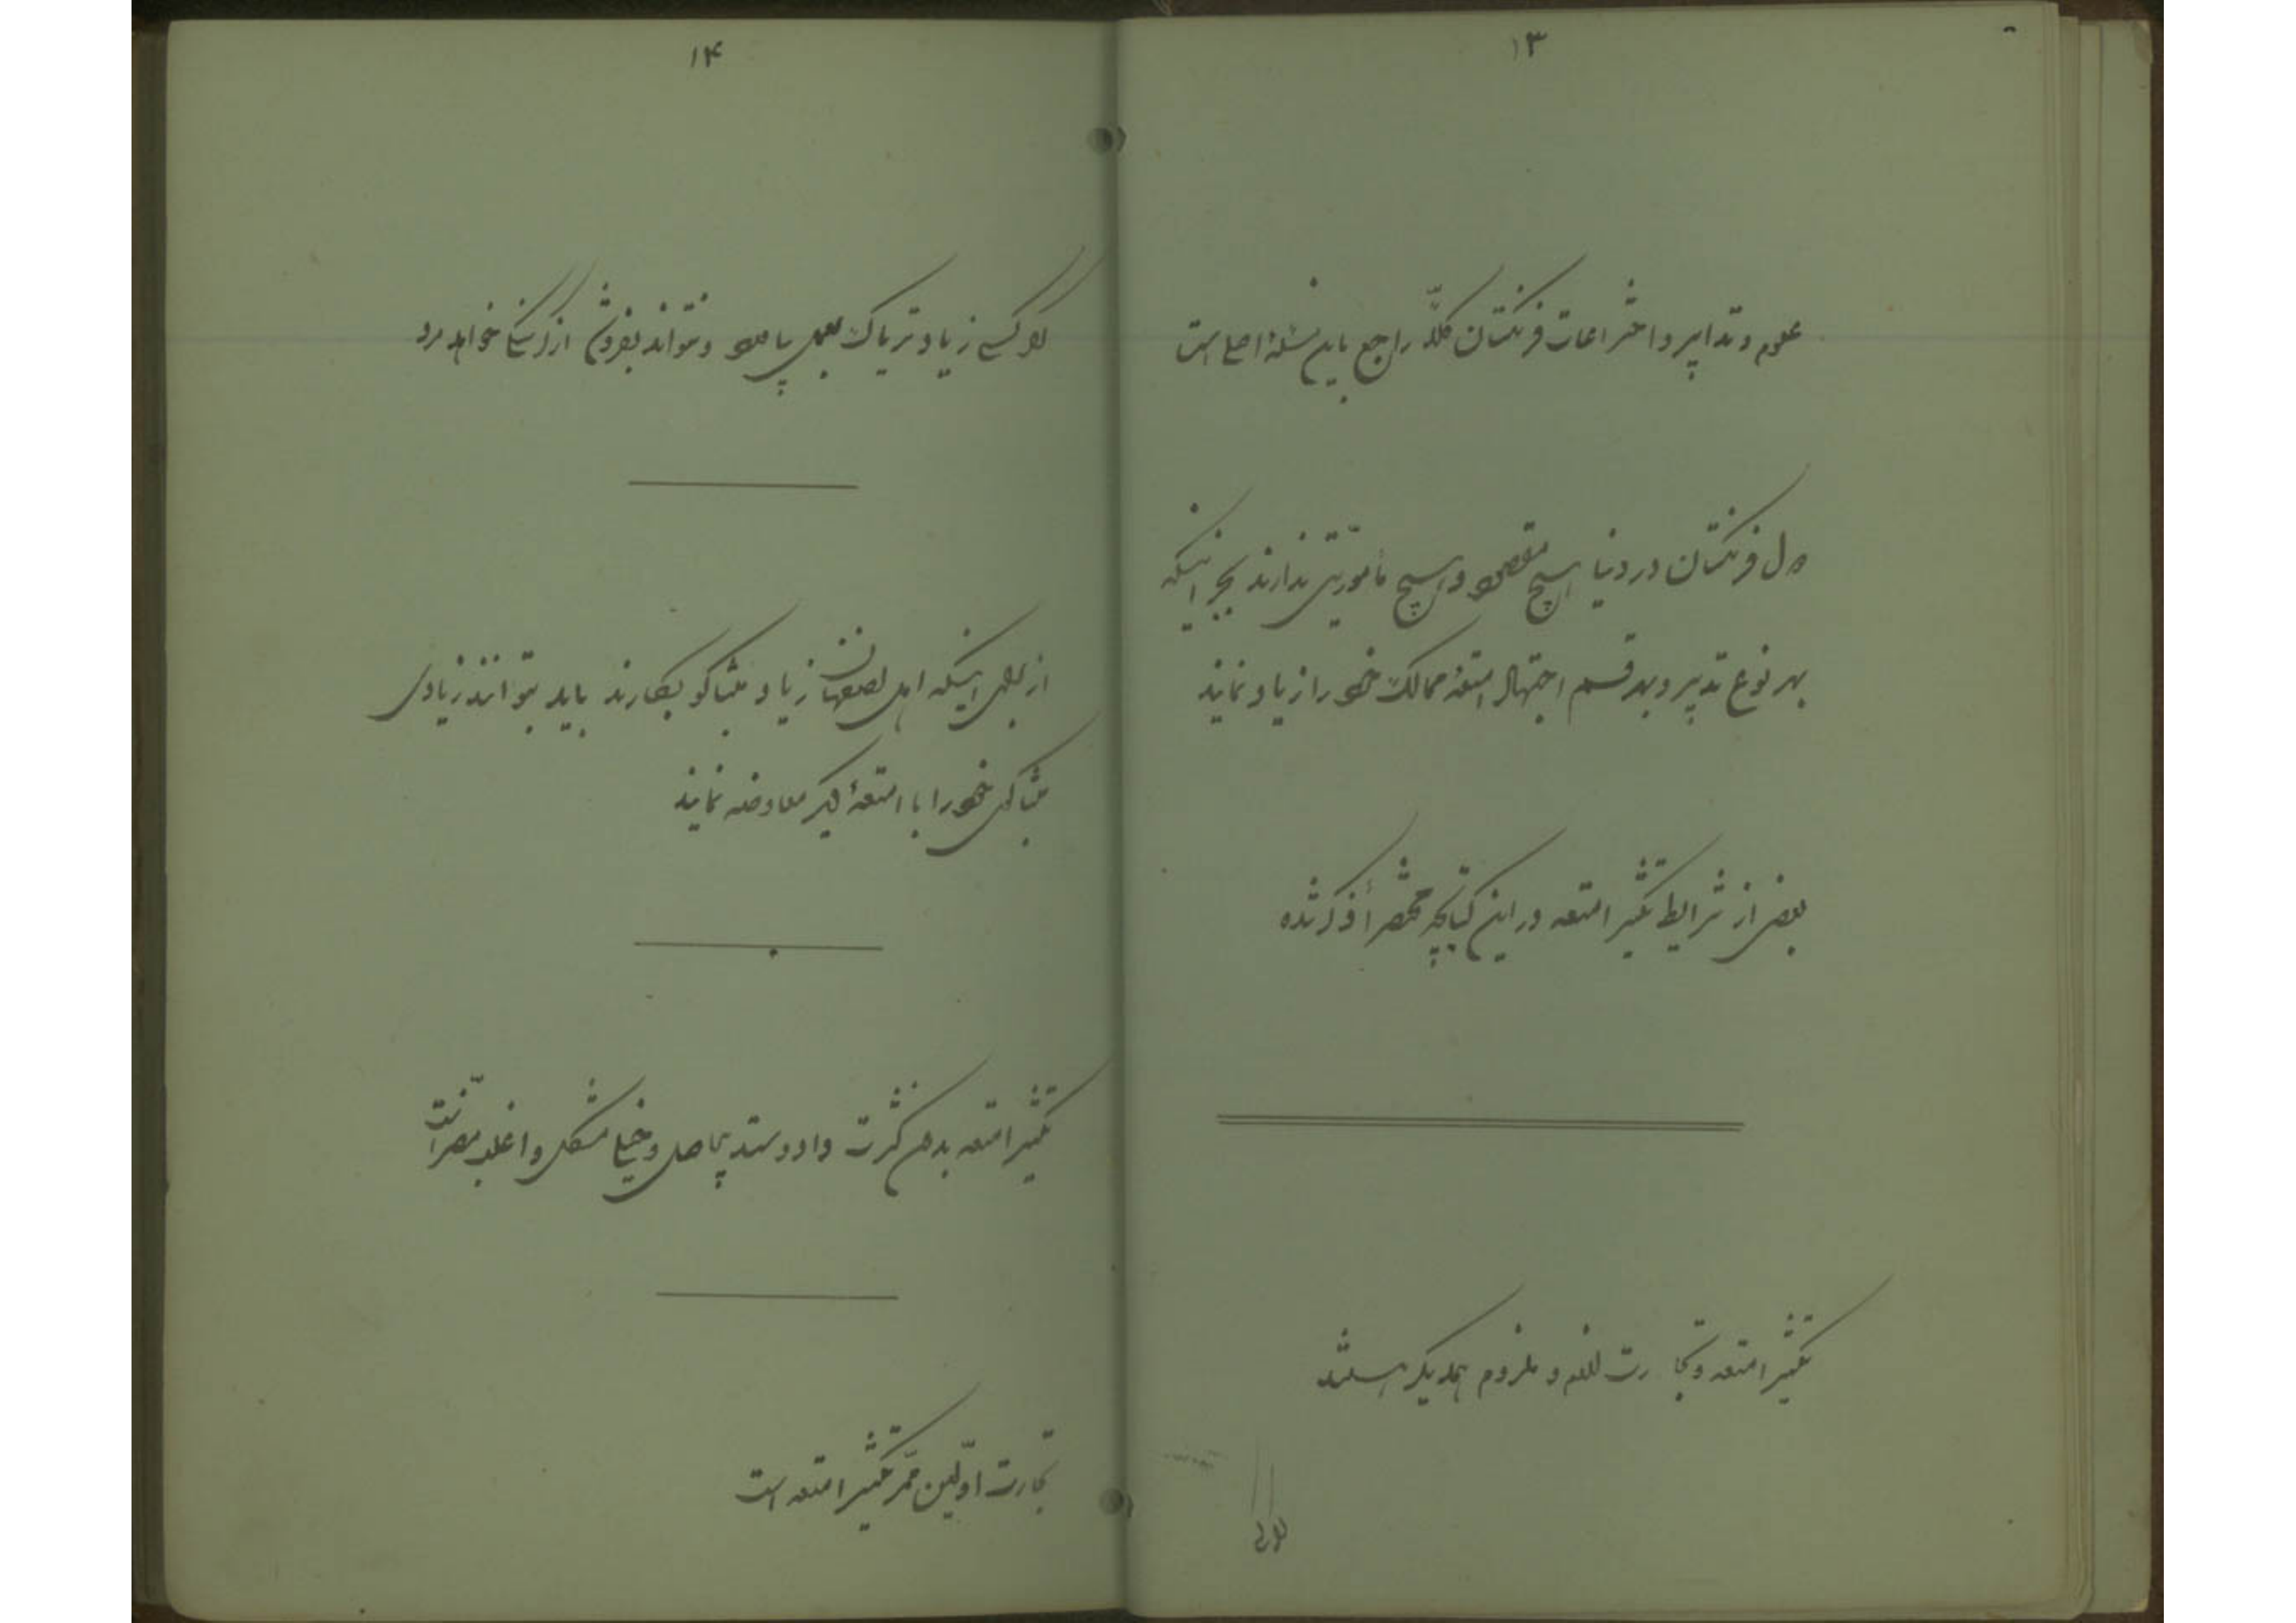 ۱۳
علوم و تدابیر و اختراعات فرنگستان کلاً راجع باین مسئلهٔ اصلی است
دول فرنگستان در دنیا هیچ مقصود و هیچ مأموریتی ندارند بجز اینکه
بهر نوع تدبیر و بهر قسم اجتهاد امتعهٔ ممالک خود را زیاد نمایند
بعضی از شرایط تکثیر امتعه در این کتابچه مختصراً ذکر شده
تکثیر امتعه و تجارت لازم و ملزوم همدیگر هستند
۱۴
اگر کسی زیاد تریاک بعمل بیاورد و نتواند بفروشد از گرسنگی خواهد مرد
از برای اینکه اهل اصفهان زیاد تنباکو بکارند باید بتوانند زیادی
تنباکوی خود را با امتعهٔ دیگر معاوضه نمایند
تکثیر امتعه بدون کثرت داد و ستد بیحاصل و خیلی مشکل و اغلب مضر است
تجارت اولین ممد تکثیر امتعه است